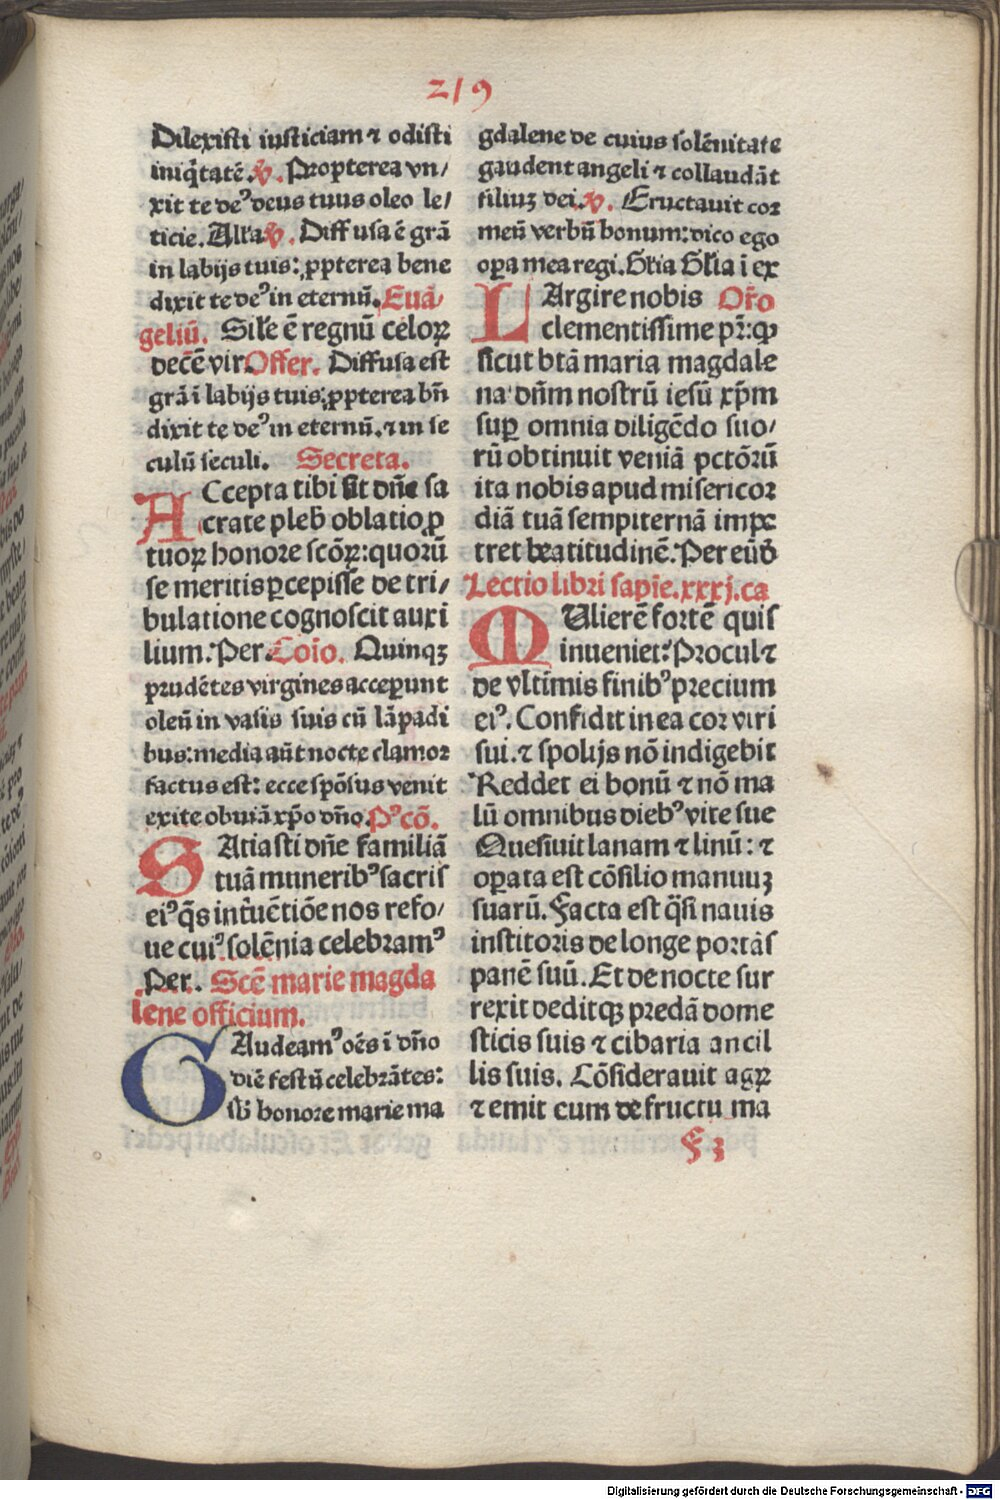 219
Dilexisti iusticiam ⁊ odisti
iniq̇tatē. ℣. Propterea vn/
xit te deꝰ deus tuus oleo le/
ticie. Alľa ℣. Diffusa ē grā
in labijs tuis: ꝓpterea bene
dixit te deꝰ in eternū. Euā/
geliū. Sil̃e ē regnū celoꝝ
decē vir Offer. Diffusa est
grā ī labijs tuis: ꝓpterea bn̄
dixit te deꝰ in eternū. ⁊ in se
culū seculi. Secreta.
ACcepta tibi sit dn̄e sa
crate pleb̕ oblatio ꝓ
tuoꝝ honore scōꝝ: quorū
se meritis ꝑcepisse de tri/
bulatione cognoscit auxi
lium. Per. Cōio. Quinqꝫ
prudētes virgines acceperunt
oleū in vasis suis cū lāpadi
bus: media aūt nocte clamor
factus est: ecce spōsus venit
exite obuiā xp̄o dn̄o. Pꝰcō.
SAtiasti dn̄e familiā
tuā muneribꝰ sacris
eiꝰ q̄s intȓuētiōe nos refo/
ue cuiꝰ solēnia celebramꝰ
Per. Scē marie magda
lene officium.
GAudeamꝰ oēs ī dn̄o
diē festū celebrātes:
sb̕ honore marie ma
gdalene de cuius solēnitate
gaudent angeli ⁊ collaudāt
filiuꝫ dei. ℣. Eructauit cor
meū verbū bonum: dico ego
oꝑa mea regi. Gľia Gľia i ex
LArgire nobis Or̄o
clementissime pr̄: ꝙ
sicut btā maria magdale
na dn̄m nostrū iesū xp̄m
suꝑ omnia diligēdo suo/
rū obtinuit veniā pctōrū
ita nobis apud misericor
diā tuā sempiternā impe
tret beatitudinē. Per eūd̕
Lectio libri sapīe. xxxj. ca
MUlierē fortē quis
inueniet: Procul ⁊
de vltīmis finibꝰ precium
eiꝰ. Confidit in ea cor viri
sui. ⁊ spolijs nō indigebit
Reddet ei bonū ⁊ nō ma
lū omnibus diebꝰ vite sue
Quesiuit lanam ⁊ linū: ⁊
oꝑata est cōsilio manuuꝫ
suarū. Facta est q̄si nauis
institoris de longe portās
panē suū. Et de nocte sur
rexit deditqꝫ predā dome
sticis suis ⁊ cibaria ancil
lis suis. Cōsiderauit agꝝ
⁊ emit eum de fructu ma
F 3
Digitalisierung gefördert durch die Deutsche Forschungsgemeinschaft - DFG